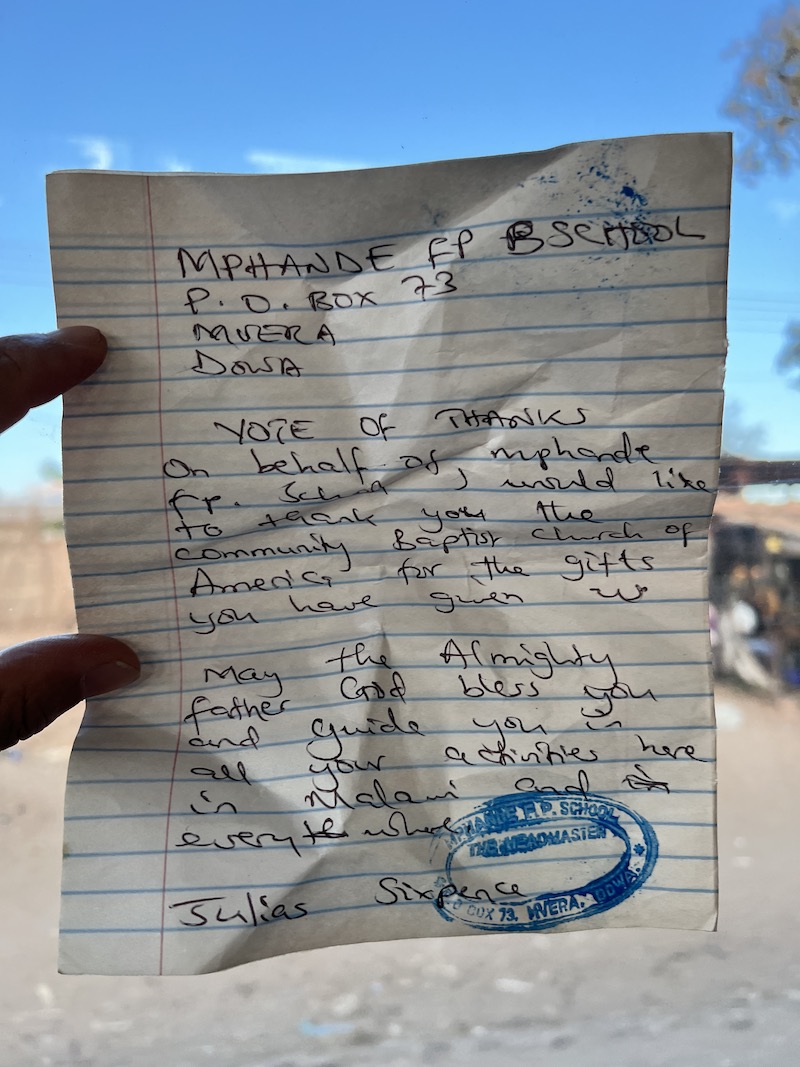 MPHANDE FP SCHOOL
P. O. BOX 73
MVERA
DOWA
VOTE OF THANKS
On behalf of mphande
F.p. School I would like
to thank you the
community Baptist church of
America for the gifts
you have given us
May the Almighty
father God bless you
and guide you in
all your activities here
in Malawi and
every where
Julias Sixpence
MPHANDE F.P. SCHOOL
THE HEADMASTER
P O BOX 73, MVERA, DOWA